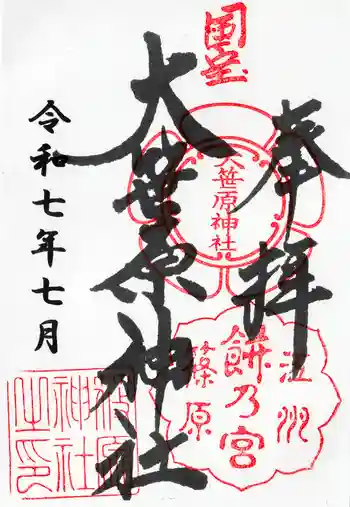 奉拝
国宝
大笹原神社
令和七年七月
大笹原神社
江州
餅乃宮
篠原
神社
之印